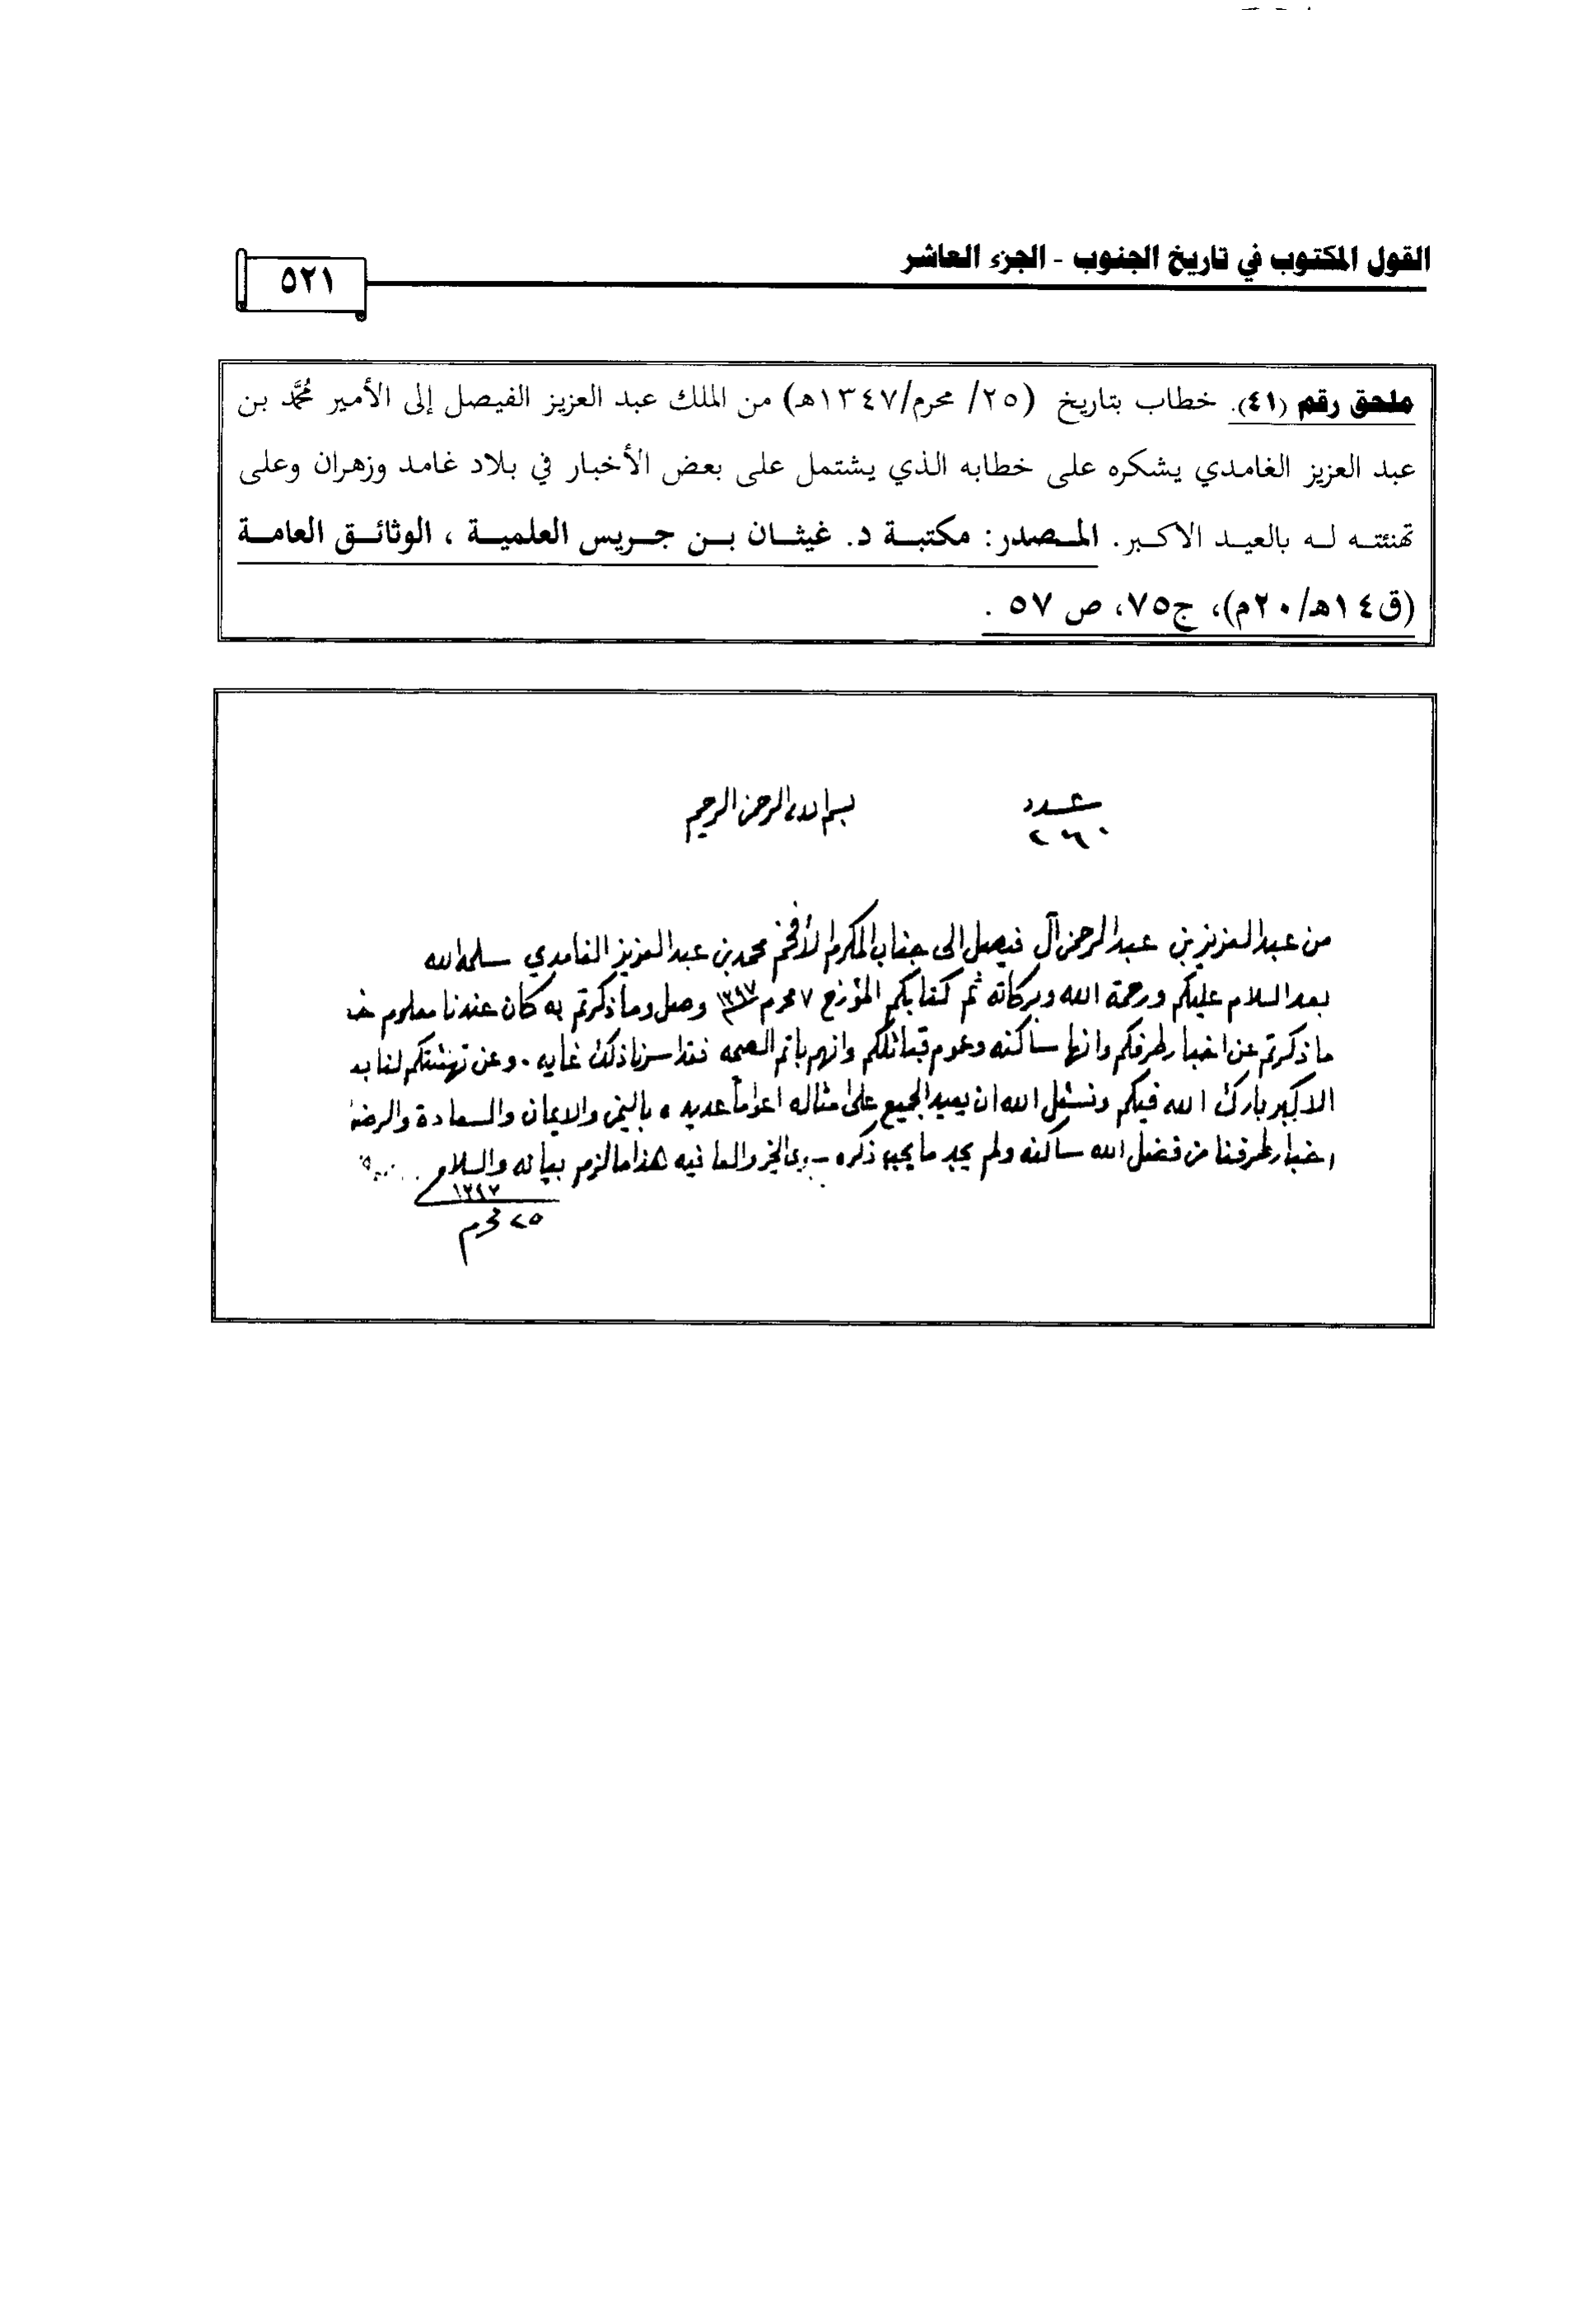 القول المكتوب في تاريخ الجنوب - الجزء العاشر
٥٢١
ملحق رقم (٤١). خطاب بتاريخ (٢٥/ محرم/١٣٤٧هـ) من الملك عبد العزيز الفيصل إلى الأمير محمَّد بن
عبد العزيز الغامدي يشكره على خطابه الذي يشتمل على بعض الأخبار في بلاد غامد وزهران وعلى
تهنئته له بالعيد الاكبر. المصدر: مكتبة د. غيثان بن جريس العلمية ، الوثائق العامة
(ق١٤هـ/٢٠م)، ج٧٥، ص ٥٧ .
عدد
٢٦٠
بسم الله الرحمن الرحيم
من عبدالعزيز بن عبدالرحمن آل فيصل الى جناب المكرم الأفخم محمد بن عبدالعزيز الغامدي سلمه الله
بعد السلام عليكم ورحمة الله وبركاته ثم كتابكم المؤرخ ٧ محرم ١٣٤٧ وصل وما ذكرتم به كان عندنا معلوم
ما ذكرتم عن اخبار طرفكم وانها ساكنه وعموم قبائلكم وانهم باتم الصحه فقد سرنا ذلك غايه . وعن تهنئتكم لنا
الاكبر بارك الله فيكم ونسئل الله ان يعيد الجميع على امثاله اعواماً عديده باليمن والايمان والسعادة
اخبار طرفنا من فضل الله ساكنه ولم يجد ما يجب ذكره سوى الخير والعافيه هذا ما لزم بيانه والسلام
١٣٤٧
٢٥ محرم